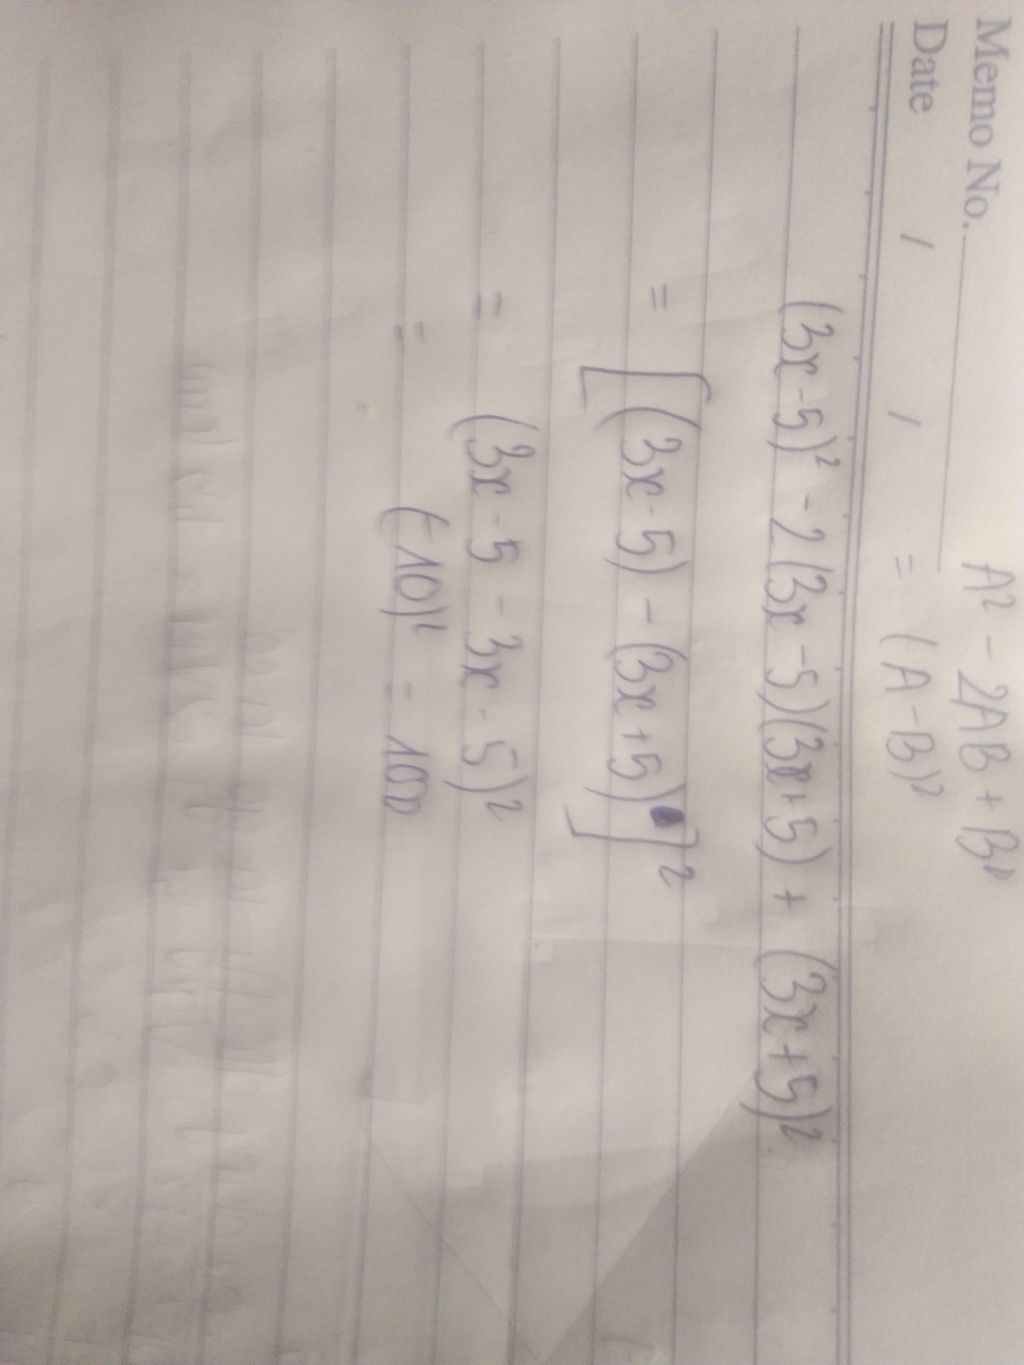 Memo No.
Date / /
A² - 2AB + B²
= (A-B)²
(3x-5)² - 2(3x-5)(3x+5) + (3x+5)²
= [(3x-5) - (3x+5)]²
= (3x-5 - 3x-5)²
= (-10)² = 100